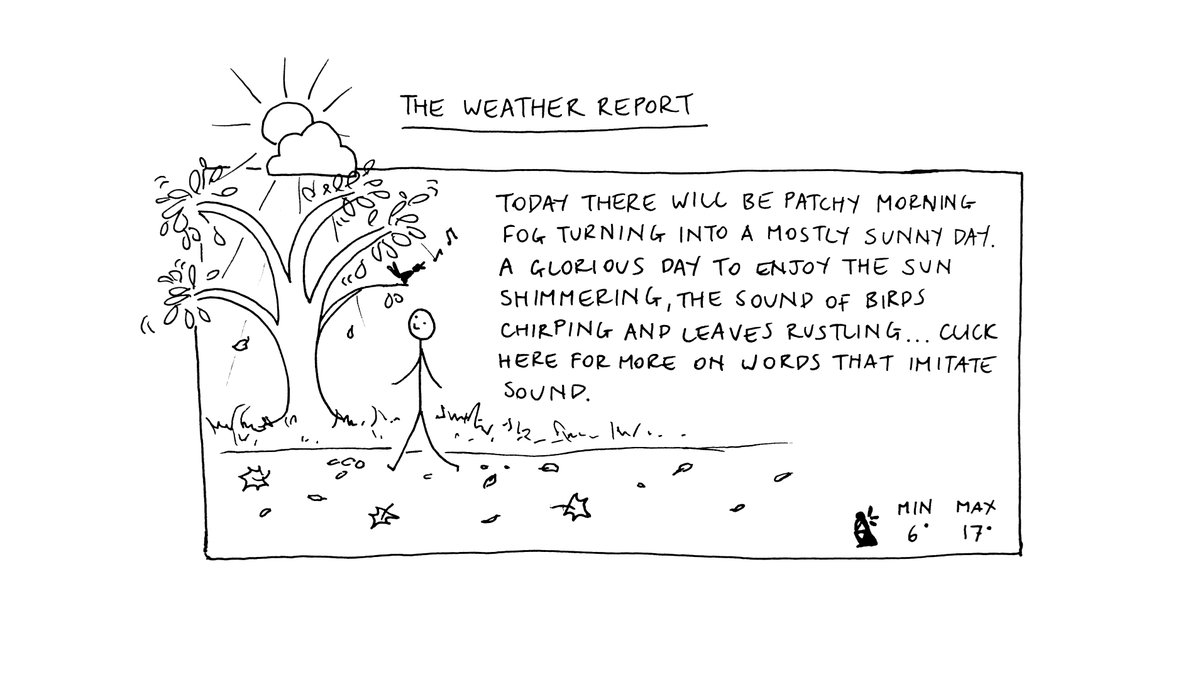 THE WEATHER REPORT
TODAY THERE WILL BE PATCHY MORNING
FOG TURNING INTO A MOSTLY SUNNY DAY.
A GLORIOUS DAY TO ENJOY THE SUN
SHIMMERING, THE SOUND OF BIRDS
CHIRPING AND LEAVES RUSTLING... CLICK
HERE FOR MORE ON WORDS THAT IMITATE
SOUND.
MIN MAX
6° 17°